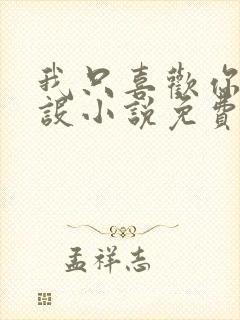 我只喜歡你
設小說免費
孟祥志